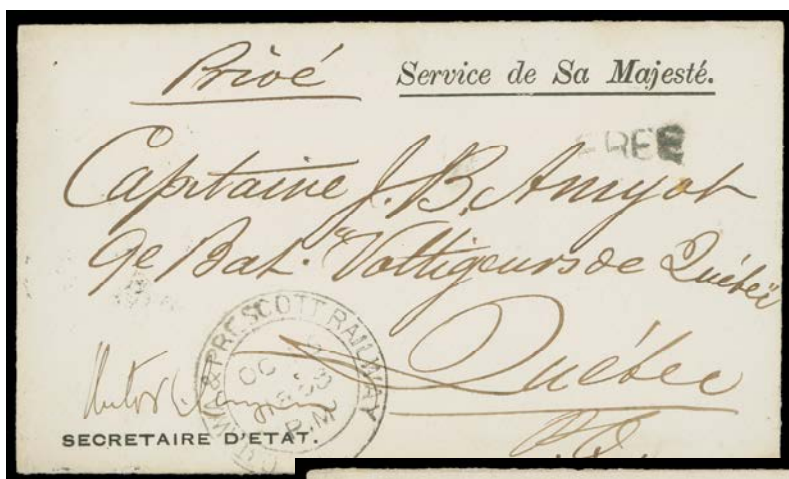 Privé Service de Sa Majesté.
FREE
Capitaine J. B. Amyot
9e Bat. "Voltigeurs de Québec"
Québec
P.Q.
& PRESCOTT RAILWAY
OC
P.M
SECRETAIRE D'ETAT.